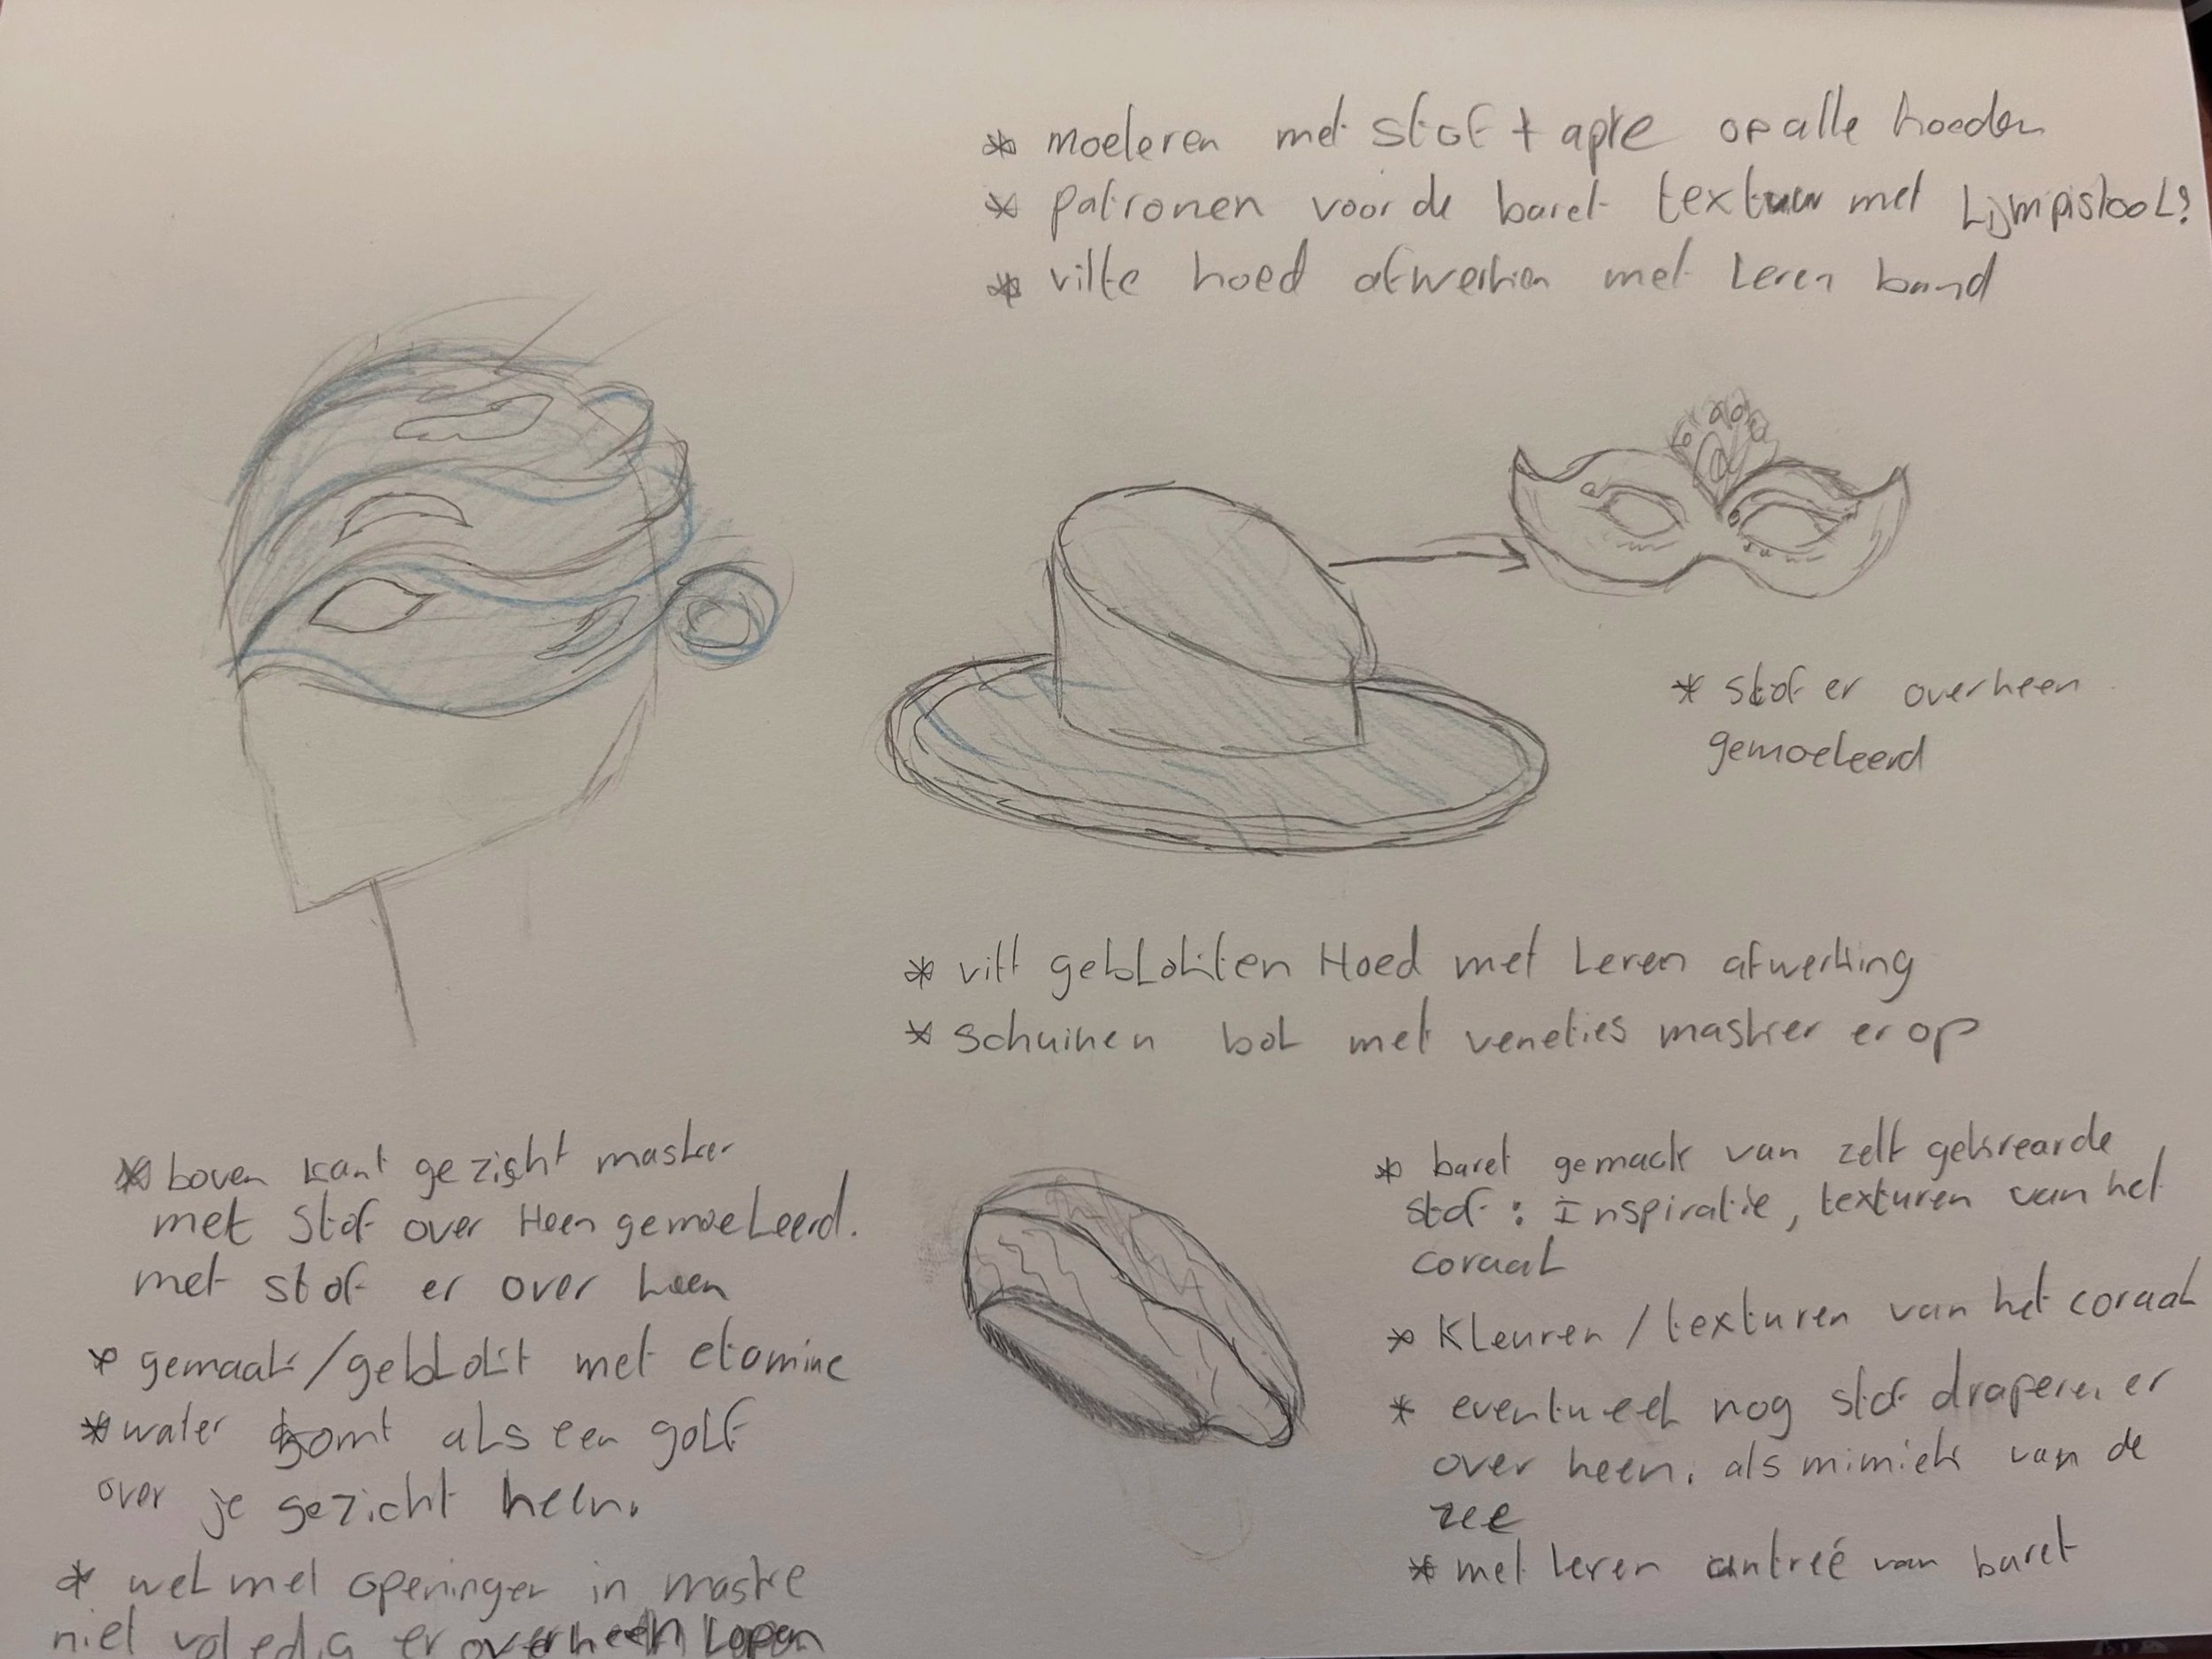 * moeleren met stof + apre op alle hoeden
* patronen voor de baret textuur met Lijmpistool?
* vilte hoed afwerken met Leren band
* stof er overheen
gemoeleerd
* vilt geblokten Hoed met Leren afwerking
* schuinen bol met veneties masker er op
* boven kant gezicht masker
met stof over Heen gemoeleerd.
met stof er over heen
* gemaakt/geblokt met etamine
* water komt als een golf
over je gezicht heen.
* wel met openingen in maske
niet voledig er overheen Lopen
* baret gemaakt van zelf gekrearde
stof : Inspiratie, texturen van het
coraal
* Kleuren / texturen van het coraal
* eventueel nog stof draperen er
over heen. als mimiek van de
zee
* met leren antreé van baret